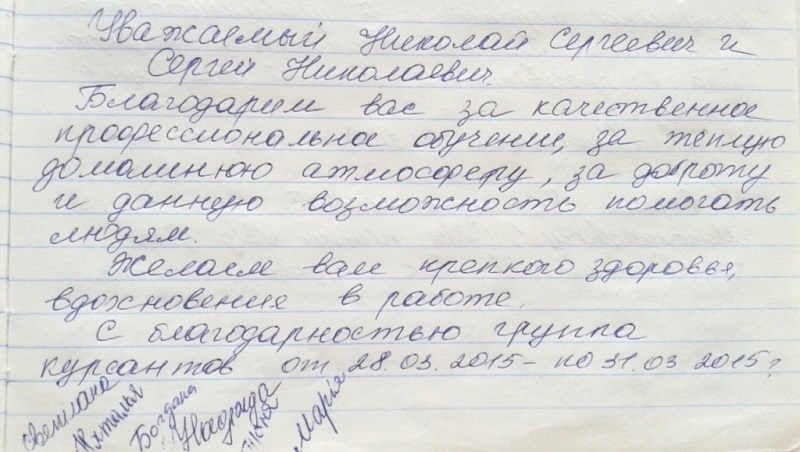 Уважаемый Николай Сергеевич и
Сергей Николаевич.
Благодарим вас за качественное
профессиональное обучение, за тёплую
домашнюю атмосферу, за доброту
и данную возможность помогать
людям.
Желаем вам крепкого здоровья,
вдохновение в работе.
С благодарностью группа
курсантов от 28.03.2015 - по 31.03.2015г
Светлана
Наталья
Богдана
Надежда
Марія